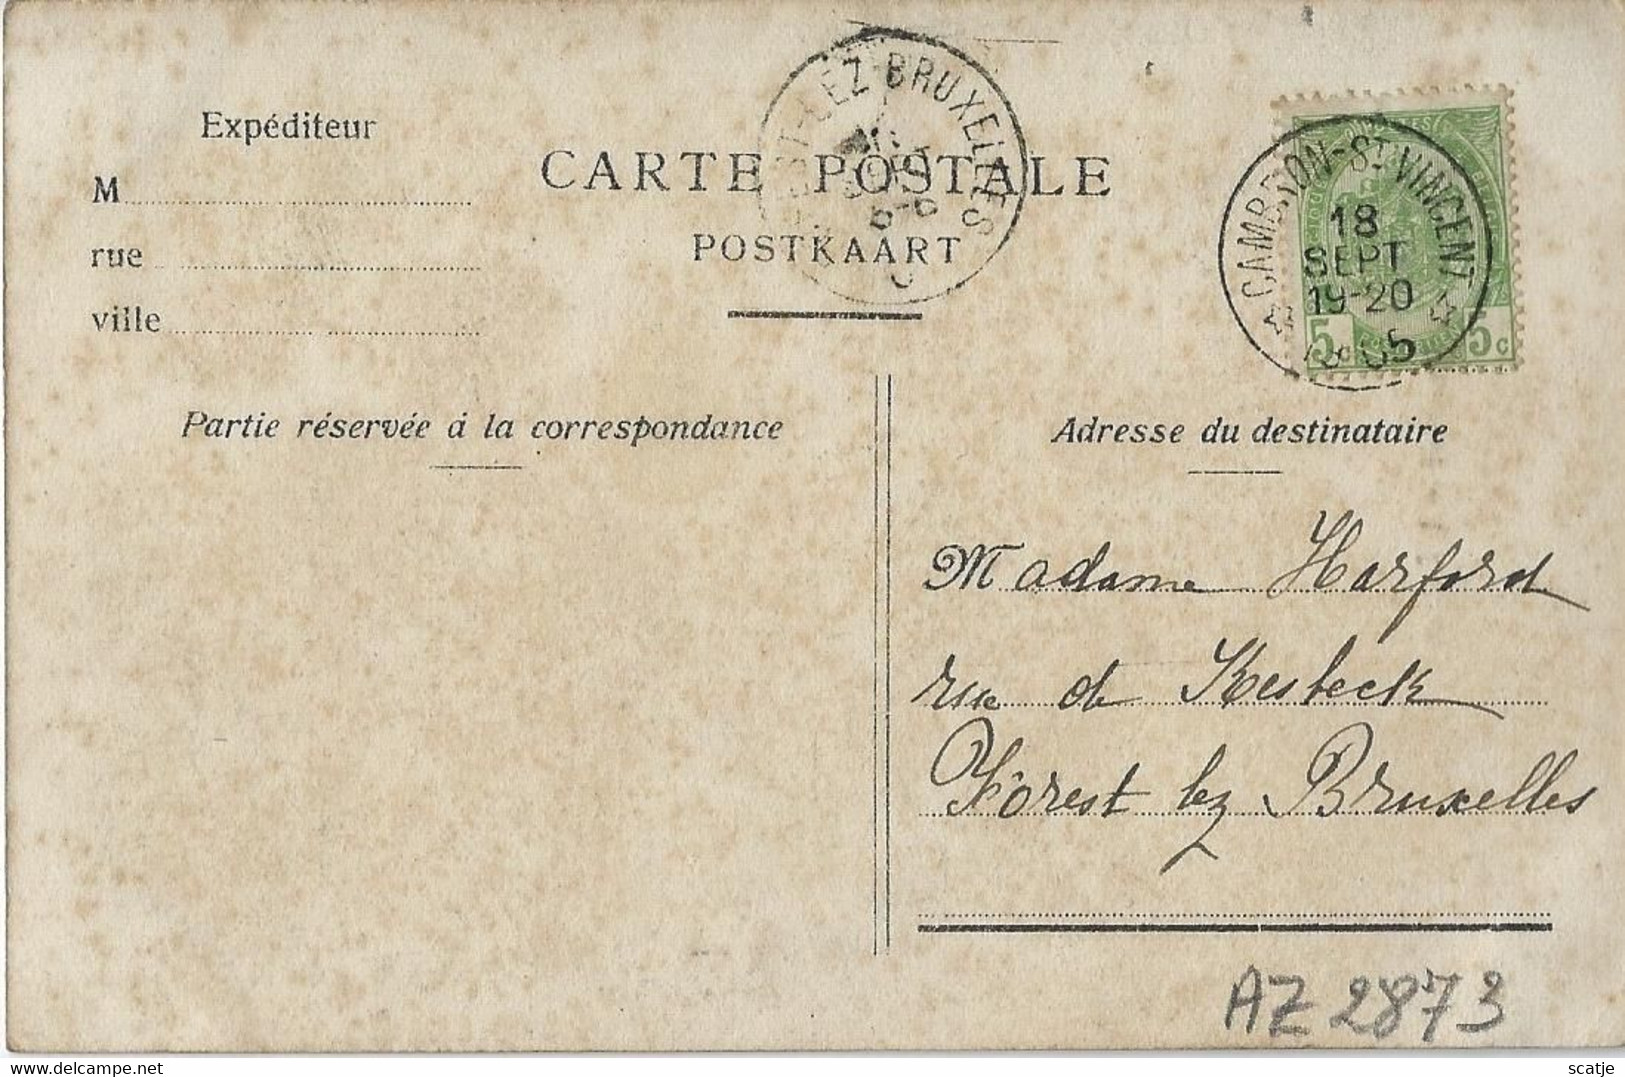 Expéditeur
M
rue
ville
CARTE POSTALE
POSTKAART
LEZ-BRUXELLES
CAMBRON-ST VINCENT
18
SEPT
19-20
5c 5c
Partie réservée á la correspondance
Adresse du destinataire
Madame Harford
rue de Kesbeck
Forest lez Bruxelles
AZ 2873
delcampe.net
scatje